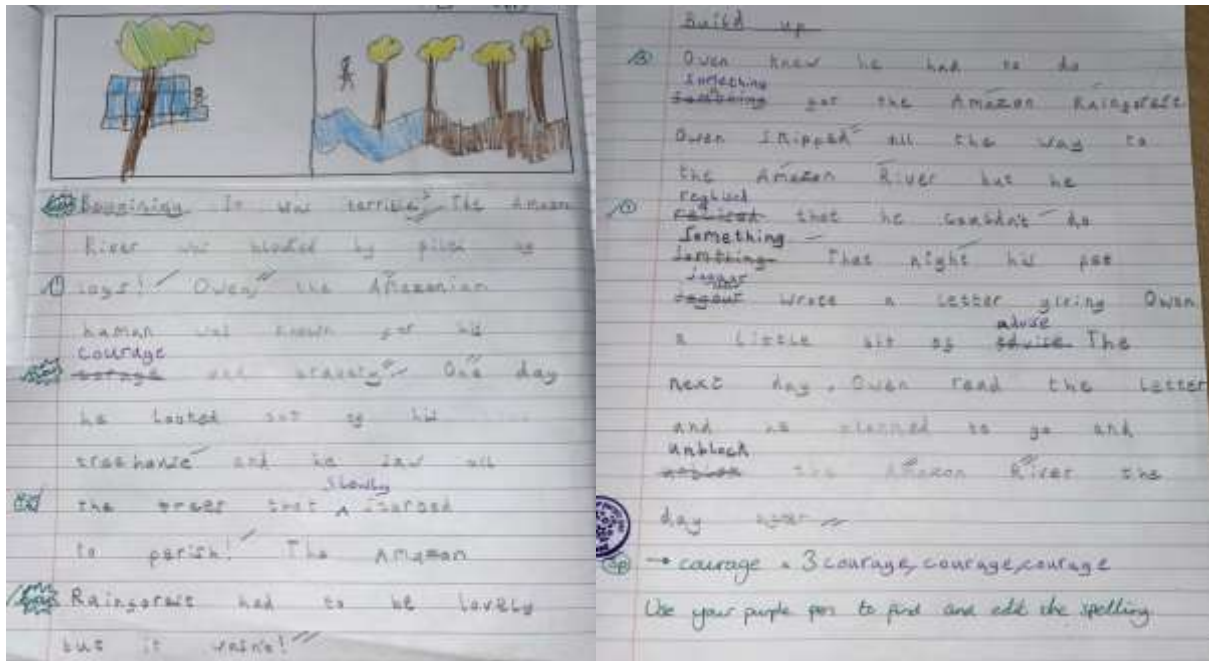 Beggining It was terrible. The Amazon
River was blocked by piles of
logs! Owen, the Amazonian
human was known for his
courage
corage and bravery. One day
he looked out of his
treehouse and he saw all
slowly
the trees that ^ started
to perish! The Amazon
Rainforest had to be lovely
but it wasn't!
Build up
Owen knew he had to do
something
for the Amazon Rainforest.
Owen skipped all the way to
the Amazon River but he
realised
that he couldn't do
Something
Somthing. That night his pet
Jaguar
wrote a letter giving Owen
advise
a little bit of The
next day, Owen read the letter
and he planned to go and
unblock
the Amazon River the
day after
sp → courage x 3 courage, courage, courage
Use your purple pen to find and edit the spelling.